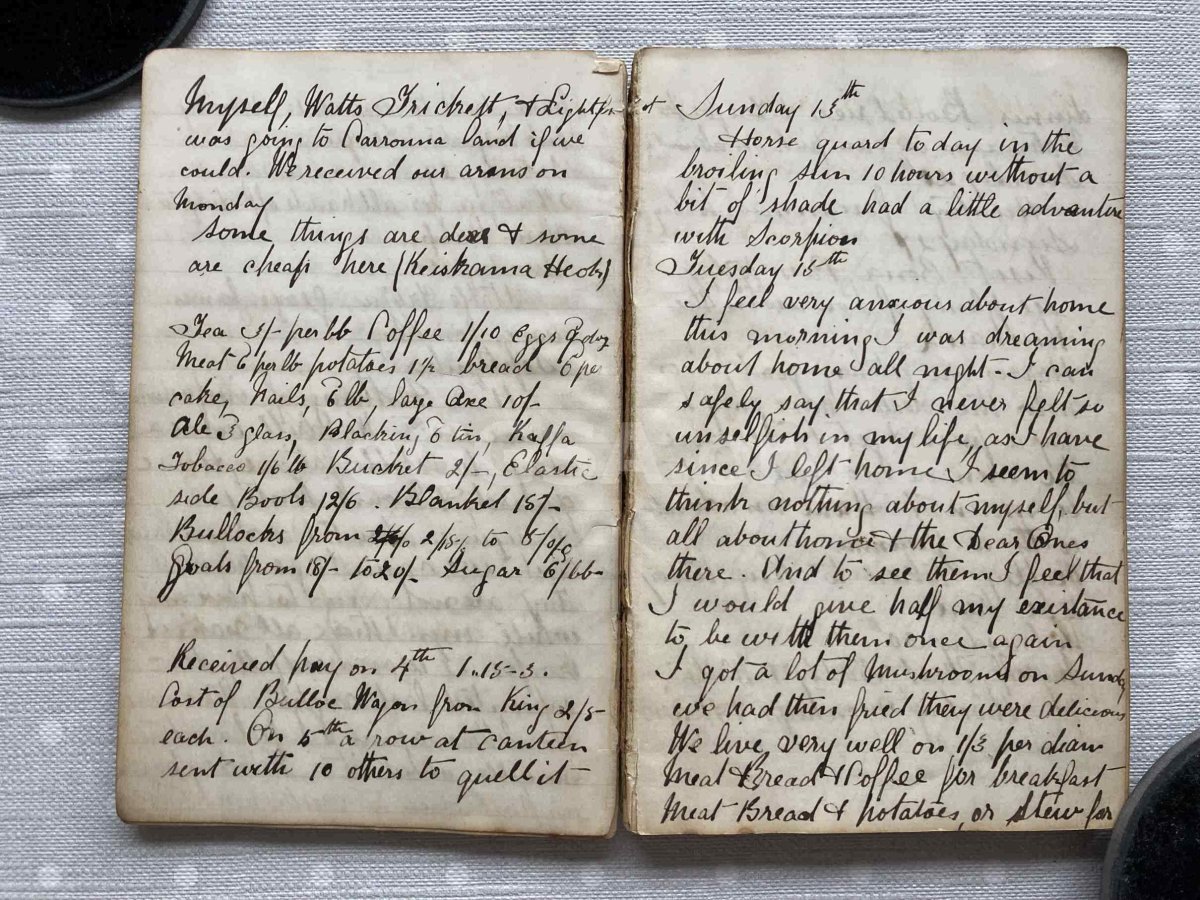 Myself, Watts Trickett, & Lightfoot
was going to Carronna land if we
could. We received our arms on
Monday
Some things are dear & some
are cheap here (Keiskama Heok)
Tea 3/- per lb Coffee 1/10 Eggs
Meat 6 per lb potatoes 1½ bread 6 per
cake, Nails, 6 lb, large Axe 10/-
Ale 3 glass, Blacking 6 tin, Kaffa
Tobacco 1/6 lb Bucket 2/-, Elastic
side Boots 12/6. Blanket 15/-
Bullocks from 2/15/- to 8/0/0
Goats from 18/- to 20/- Sugar 6/lb-
Received pay on 4th 1.15-3.
Cost of Bulloc Wagon from King 2/5-
each. On 5th a row at canteen
sent with 10 others to quell it
Sunday 13th
Horse guard today in the
broiling sun 10 hours without a
bit of shade had a little adventure
with Scorpion
Tuesday 15th
I feel very anxious about home
this morning I was dreaming
about home all night - I can
safely say that I never felt so
unselfish in my life, as I have
since I left home I seem to
think nothing about myself, but
all about home & the Dear Ones
there. And to see them I feel that
I would give half my existance
to be with them once again
I got a lot of Mushrooms on Sunday
we had them fried they were delicious
We live very well on 1/3 per diam
Meat & Bread & Coffee for breakfast
Meat Bread & potatoes, or stew for